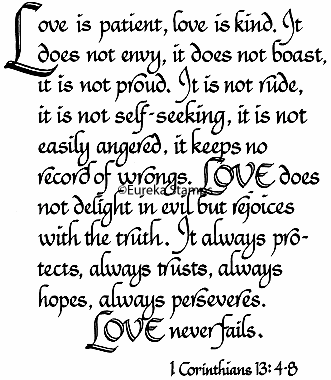 Love is patient, love is kind. It
does not envy, it does not boast,
it is not proud. It is not rude,
it is not self-seeking, it is not
easily angered, it keeps no
record of wrongs. LOVE does
©Eureka Stamps
not delight in evil but rejoices
with the truth. It always pro-
tects, always trusts, always
hopes, always perseveres.
LOVE never fails.
1 Corinthians 13:4-8